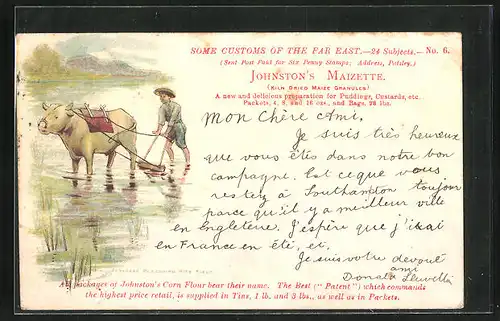 SOME CUSTOMS OF THE FAR EAST.—24 Subjects.—No. 6.
(Sent Post Paid for Six Penny Stamps; Address, Paisley.)
JOHNSTON'S MAIZETTE.
(KILN DRIED MAIZE GRANULES)
A new and delicious preparation for Puddings, Custards, etc.
Packets, 4, 8, and 16 ozs., and Bags, 28 lbs.
Mon Chère Ami.
Je suis très heureux
que vous étés dans notre bon
campagne. Est ce que vous
restey à Southampton toujour
parce qu'il y a meilleur ville
en Engleterre. J'espére que j'irai
en France en été, et.
Je suis votre devoué
ami
Donald
JAPANESE PLOUGHING RICE FIELD
All packages of Johnston's Corn Flour bear their name. The Best ("Patent") which commands
the highest price retail, is supplied in Tins, 1 lb. and 3 lbs., as well as in Packets.